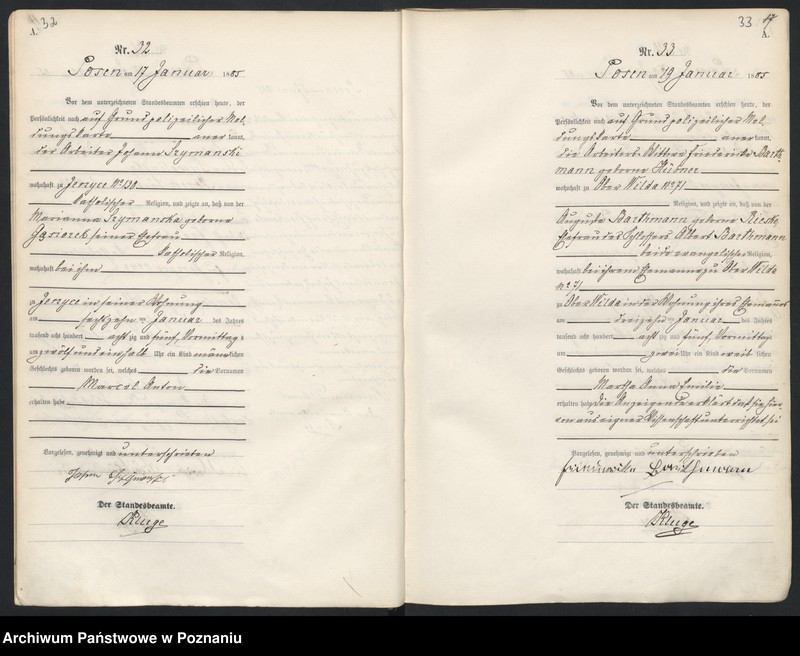 32
A.
Nr. 32
Posen am 17 Januar 1885
Vor dem unterzeichneten Standesbeamten erschien heute, der
Persönlichkeit nach auf Grund polizeilicher Mel-
dungskarte anerkannt,
der Arbeiter Johann Szymanski
wohnhaft zu Jerzyce No 130
katholischer Religion, und zeigte an, daß von der
Marianna Szymanska geborne
Gąsiorek seiner Ehefrau
katholischer Religion,
wohnhaft bei ihm
zu Jerzyce in seiner Wohnung
am sechszehn ten Januar des Jahres
tausend acht hundert acht zig und fünf, Vormittags
um zwölf und einhalb Uhr ein Kind männlichen
Geschlechts geboren worden sei, welches die Vornamen
Marcel Anton
erhalten habe
Vorgelesen, genehmigt und unterschrieben
Der Standesbeamte.
Kluge
33
A.
Nr. 33
Posen am 19 Januar 1885
Vor dem unterzeichneten Standesbeamten erschien heute, der
Persönlichkeit nach auf Grund polizeilicher Mel-
dungskarte anerkannt,
die Arbeiter Wittwe Friederike Barth-
mann geborne Hübner
wohnhaft zu Ober Wilda No 71
Religion, und zeigte an, daß von der
Auguste Barthmann geborne
Ehefrau des Schlossers Albert Barthmann
beide evangelischer Religion,
wohnhaft bei ihrem Ehemanne zu Ober Wilda
No 71
zu Ober Wilda in der Wohnung ihres Ehemannes
am dreizehn ten Januar des Jahres
tausend acht hundert acht zig und fünf Vormittags
um zwei Uhr ein Kind weiblichen
Geschlechts geboren worden sei, welches die Vornamen
Martha Anna Emilie
erhalten habe die Anzeigende erklärt daß sie hier-
von aus eigner Wissenschaft unterrichtet sei
Vorgelesen, genehmigt und unterschrieben
Friederike Barthmann
Der Standesbeamte.
Kluge
Archiwum Państwowe w Poznaniu